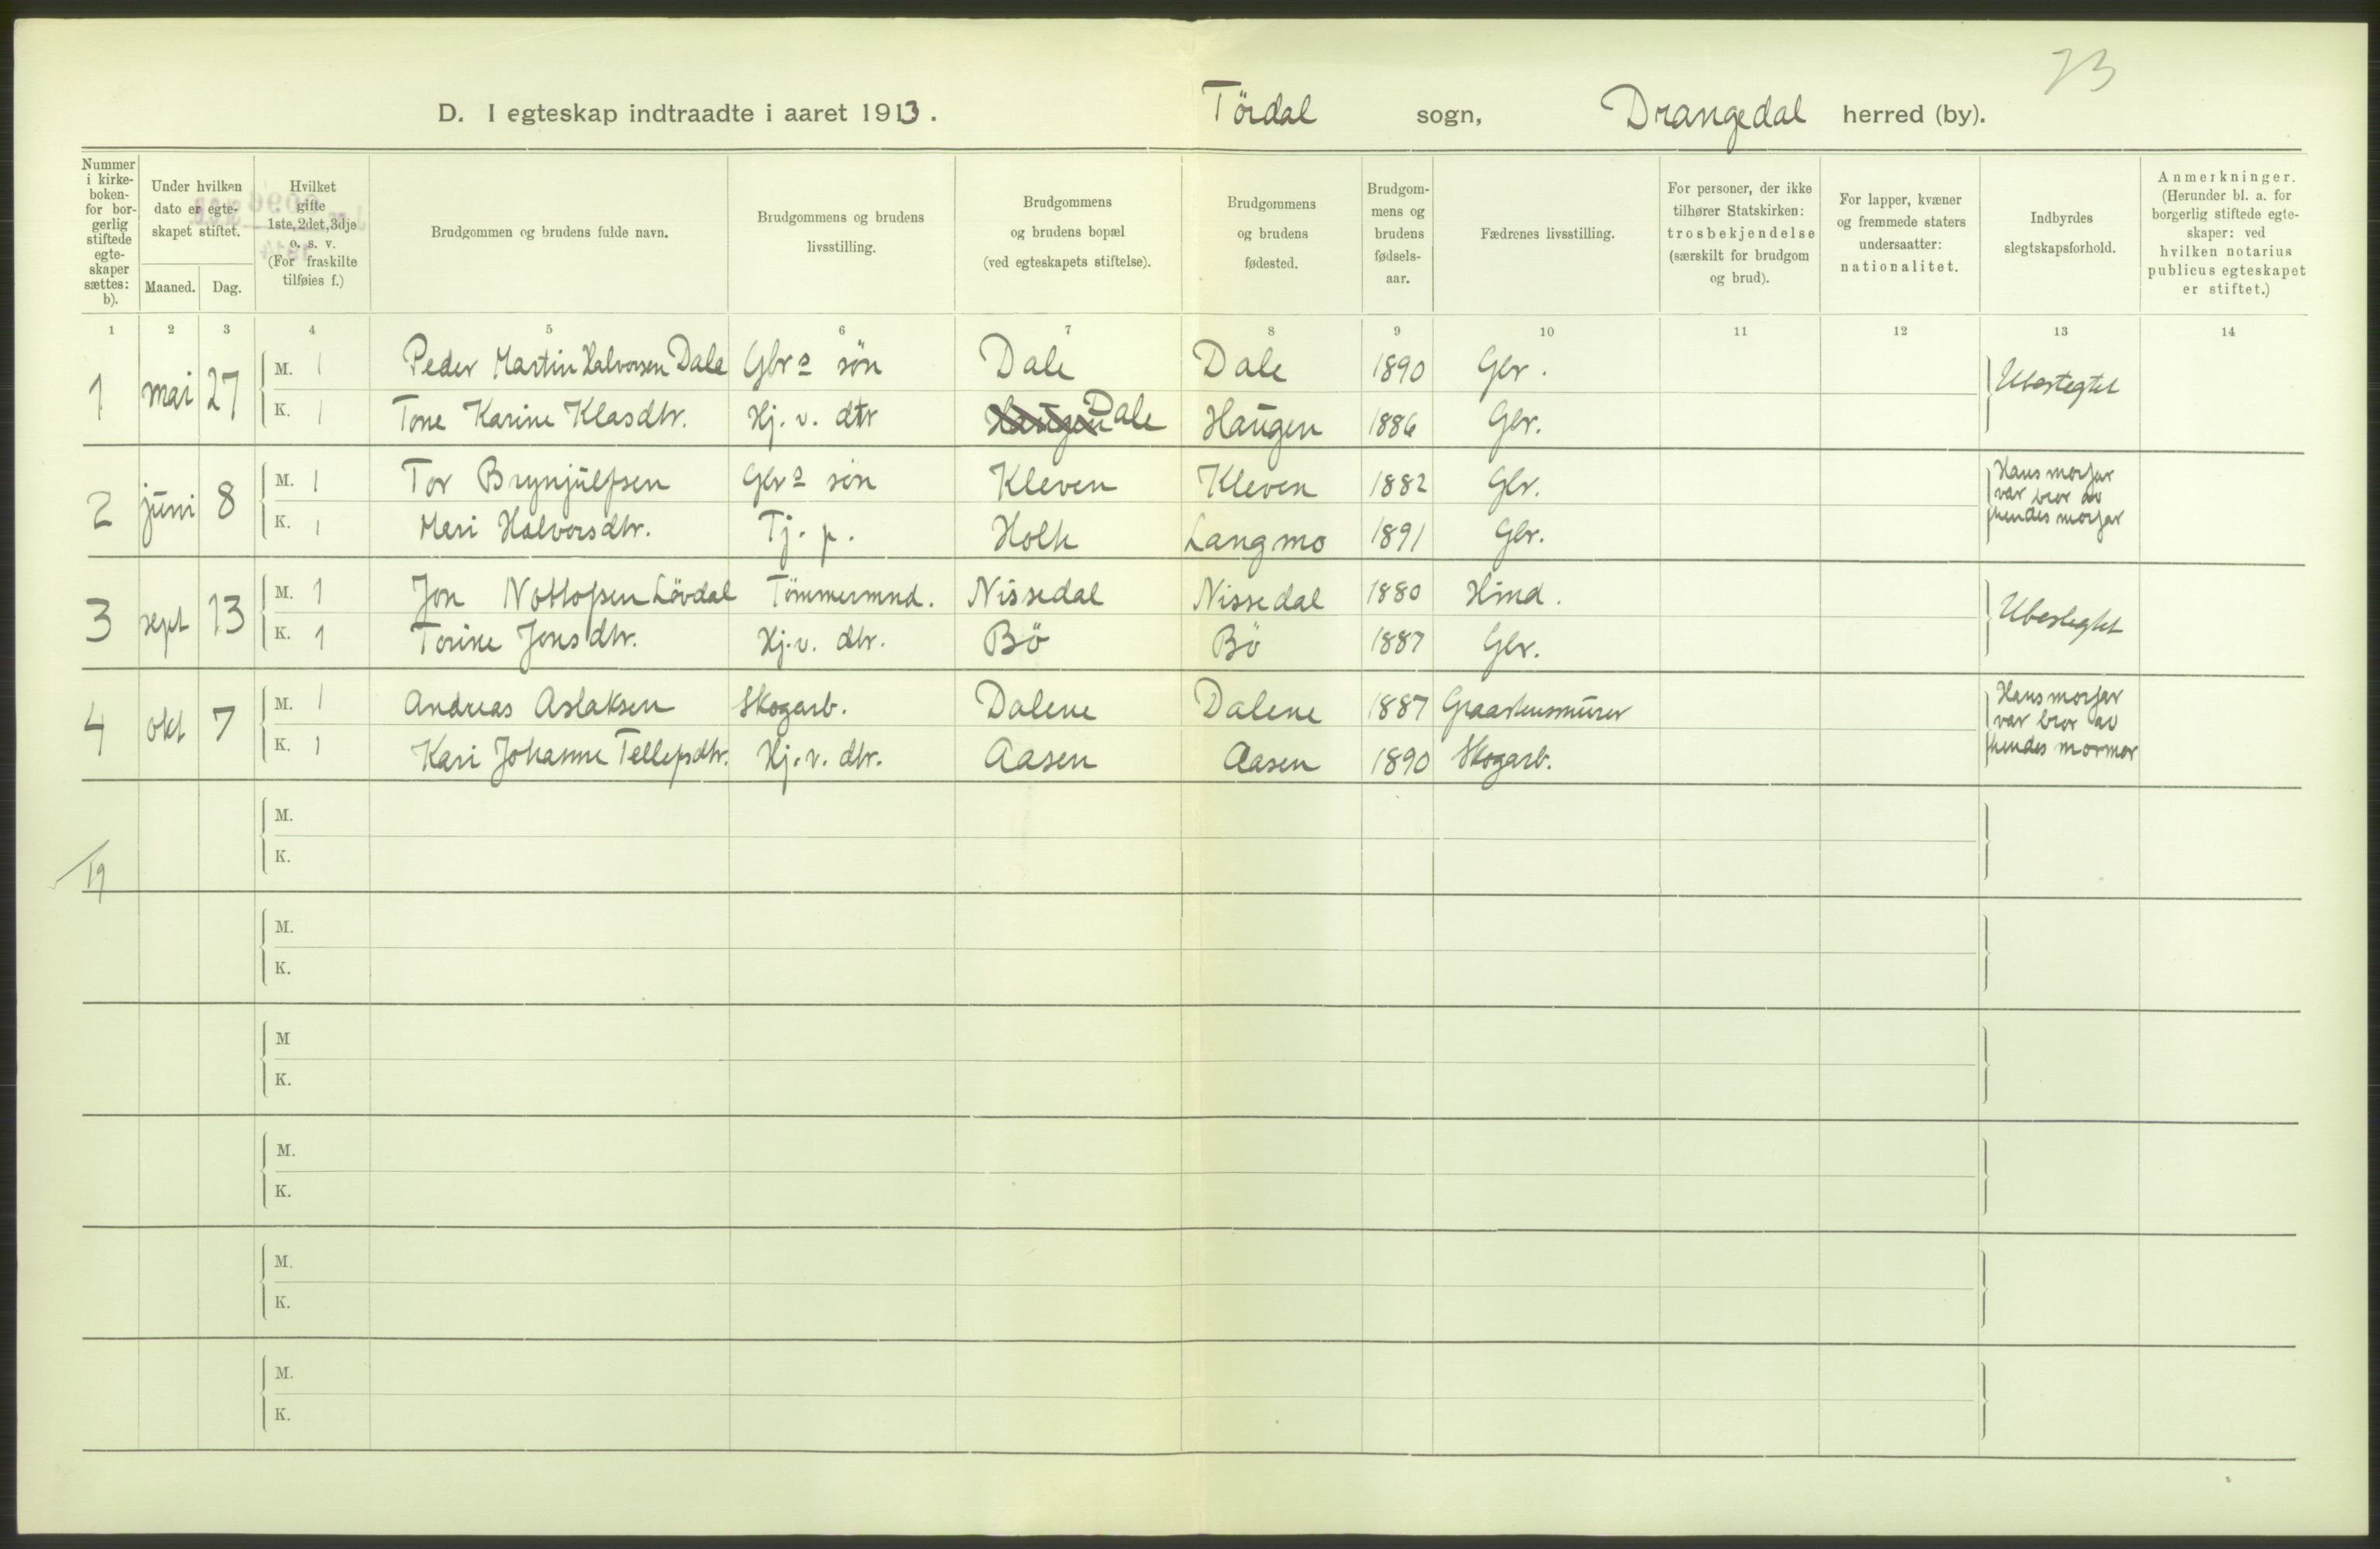 73
D. I egteskap indtraadte i aaret 1913. Tördal sogn, Drangedal herred (by).
Nummer i kirke-boken- for bor-gerlig stiftede egte-skaper sættes: b).
Under hvilken dato er egte-skapet stiftet.
Maaned. Dag.
Hvilket gifte 1ste, 2det, 3dje o. s. v. (For fraskilte tilføies f.)
Brudgommen og brudens fulde navn.
Brudgommens og brudens livsstilling.
Brudgommens og brudens bopæl (ved egteskapets stiftelse).
Brudgommens og brudens fødested.
Brudgom-mens og brudens fødsels-aar.
Fædrenes livsstilling.
For personer, der ikke tilhører Statskirken: trosbekjendelse (særskilt for brudgom og brud).
For lapper, kvæner og fremmede staters undersaatter: nationalitet.
Indbyrdes slegtskapsforhold.
Anmerkninger. (Herunder bl. a. for borgerlig stiftede egte-skaper: ved hvilken notarius publicus egteskapet er stiftet.)
1 2 3 4 5 6 7 8 9 10 11 12 13 14
1 mai 27 M. 1 Peder Martin Halvorsen Dale Gbrs søn Dale Dale 1890 Gbr. Ubeslegtet
K. 1 Tone Karine Klasdtr. Hj. v. dtr Haugen Dale Haugen 1886 Gbr.
2 juni 8 M. 1 Tor Brynjulfsen Gbrs søn Kleven Kleven 1882 Gbr. Hans morfar var bror av hendes morfar
K. 1 Meri Halvorsdtr. Tj. p. Holte Langmo 1891 Gbr.
3 sept 13 M. 1 Jon Nottofsen Lövdal Tömmermnd. Nissedal Nissedal 1880 Hmd. Ubeslegtet
K. 1 Torine Jonsdtr. Hj. v. dtr. Bö Bö 1887 Gbr.
4 okt 7 M. 1 Andreas Aslaksen Skogarb. Dalene Dalene 1887 Graastensmurer Hans morfar var bror av hendes mormor
K. 1 Kari Johanne Tellefsdtr. Hj. v. dtr. Aasen Aasen 1890 Skogarb.
M.
K.
19
M.
K.
M
K.
M.
K.
M.
K.
M.
K.